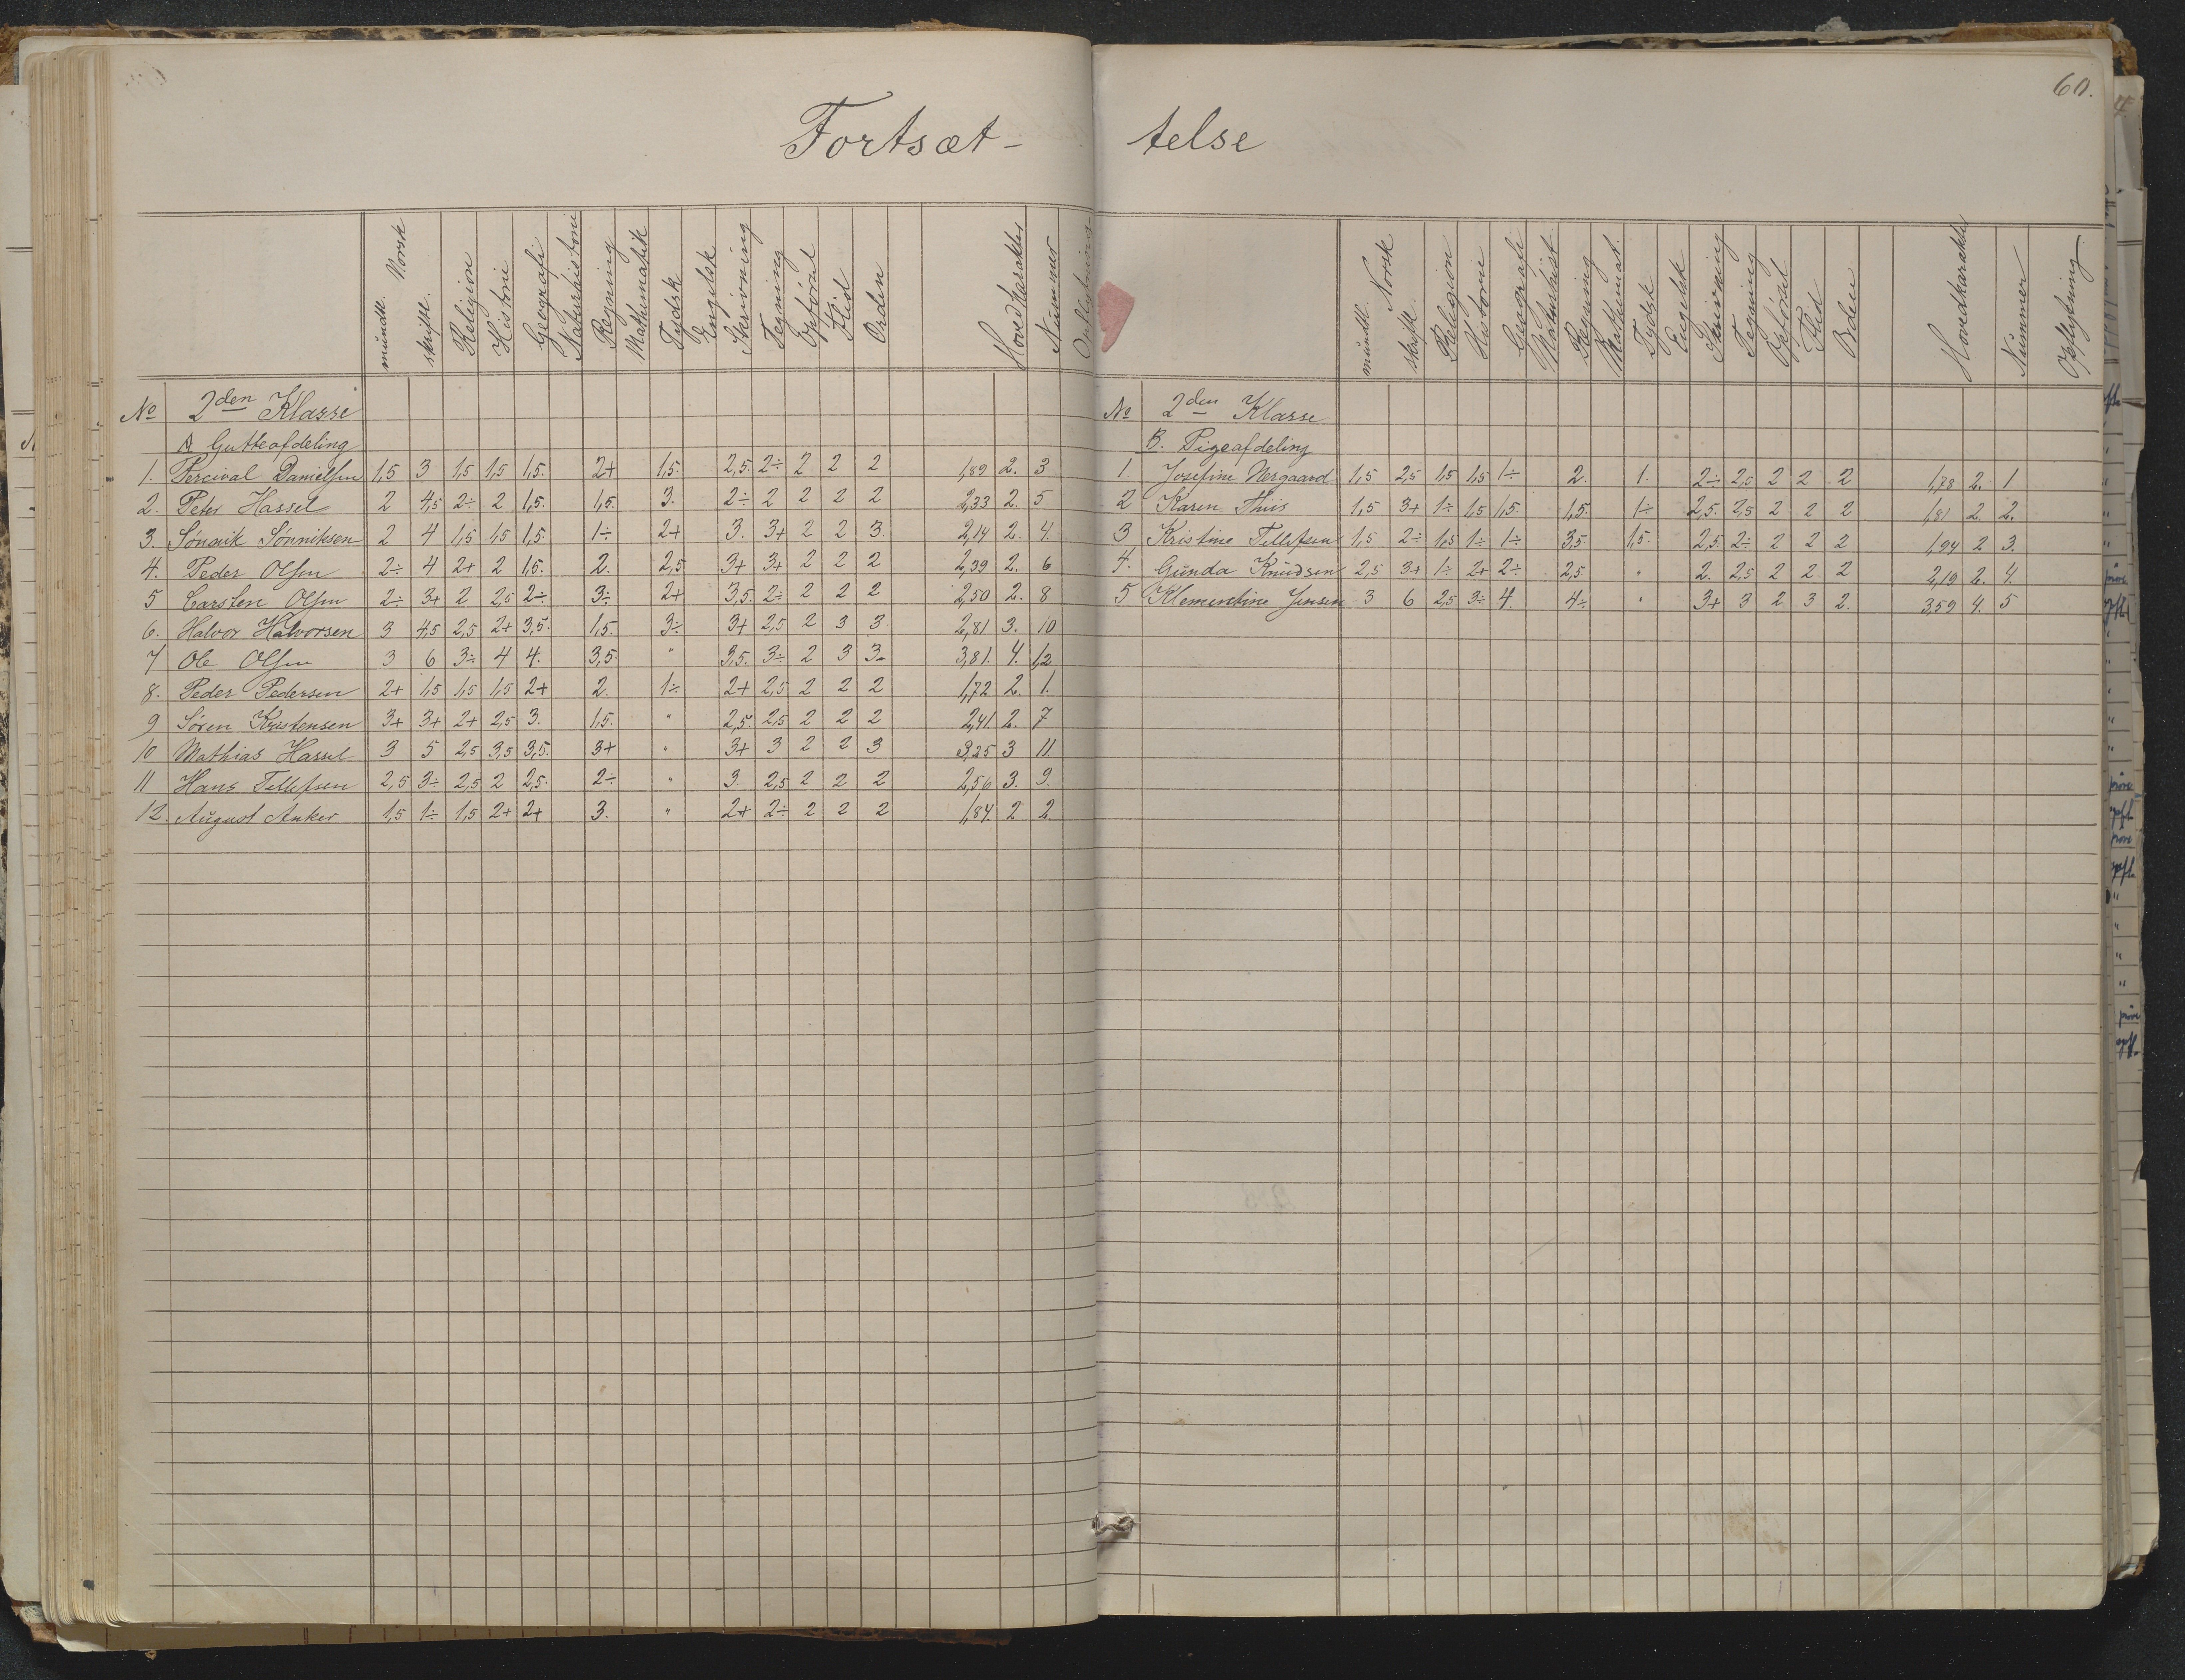 60.
Fortsæt- telse
Norsk
mündtl. skriftl. Religion Historie Geografi Naturhistorie Regning Mathematik Tydsk Engelsk Skrivning Tegning Opførsel Flid Orden Hovedkarakter Nummer
No 2den Klasse
A. Gutteafdeling
1. Percival Danielsen 1,5 3 1,5 1,5 1,5. 2+ 1,5. 2,5. 2÷ 2 2 2 1,89 2. 3
2. Peter Hassel 2 4,5 2÷ 2 1,5. 1,5. 3. 2÷ 2 2 2 2 2,33 2. 5
3. Sønnik Sønniksen 2 4 1,5 1,5 1,5. 1÷ 2+ 3. 3+ 2 2 3. 2,14 2. 4.
4. Peder Olsen 2÷ 4 2+ 2 1,5. 2. 2,5 3+ 3+ 2 2 2 2,39 2. 6
5 Carsten Olsen 2÷ 3+ 2 2,5 2÷ 3÷ 2+ 3,5. 2÷ 2 2 2 2,50 2. 8
6. Halvor Halvorsen 3 4,5 2,5 2+ 3,5. 1,5. 3÷ 3+ 2,5 2 3 3. 2,81 3. 10
7 Ole Olsen 3 6 3÷ 4 4. 3,5. " 3,5. 3÷ 2 3 3. 3,81. 4. 12.
8. Peder Pedersen 2+ 1,5 1,5 1,5 2+ 2. 1÷ 2+ 2,5 2 2 2 1,72 2. 1.
9 Søren Kristensen 3+ 3+ 2+ 2,5 3. 1,5. " 2,5. 2,5 2 2 2 2,41 2. 7
10 Mathias Hassel 3 5 2,5 3,5 3,5. 3+ " 3+ 3 2 2 3 3,25 3 11.
11 Hans Tellefsen 2,5 3÷ 2,5 2 2,5. 2÷ " 3. 2,5 2 2 2 2,56 3. 9.
12. August Anker 1,5 1÷ 1,5 2+ 2+ 3. " 2+ 2÷ 2 2 2 1,84. 2 2.
Norsk
mündtl. skriftl. Religion Historie Geografi Naturhist. Regning Mathemat. Tydsk Engelsk Skrivning Tegning Opførsel Flid Orden Hovedkarakter Nummer Opflytning
No 2den Klasse
B. Pigeafdeling
1. Josefine Nergaard 1,5 2,5 1,5 1,5 1÷ 2. 1. 2÷ 2,5 2 2 2 1,78 2. 1
2 Karen Thuis 1,5 3+ 1÷ 1,5 1,5. 1,5. 1÷ 2,5. 2,5 2 2 2 1,81 2. 2.
3 Kristine Tellefsen 1,5 2÷ 1,5 1÷ 1÷ 3,5. 1,5. 2,5. 2÷ 2 2 2 1,94 2 3.
4. Gunda Knudsen 2,5 3+ 1÷ 2+ 2÷ 2,5 " 2. 2,5 2 2 2 2,19 2. 4.
5 Klementine Jensen 3 6 2,5 3÷ 4. 4÷ " 3+ 3 2 3 2. 3,59 4. 5